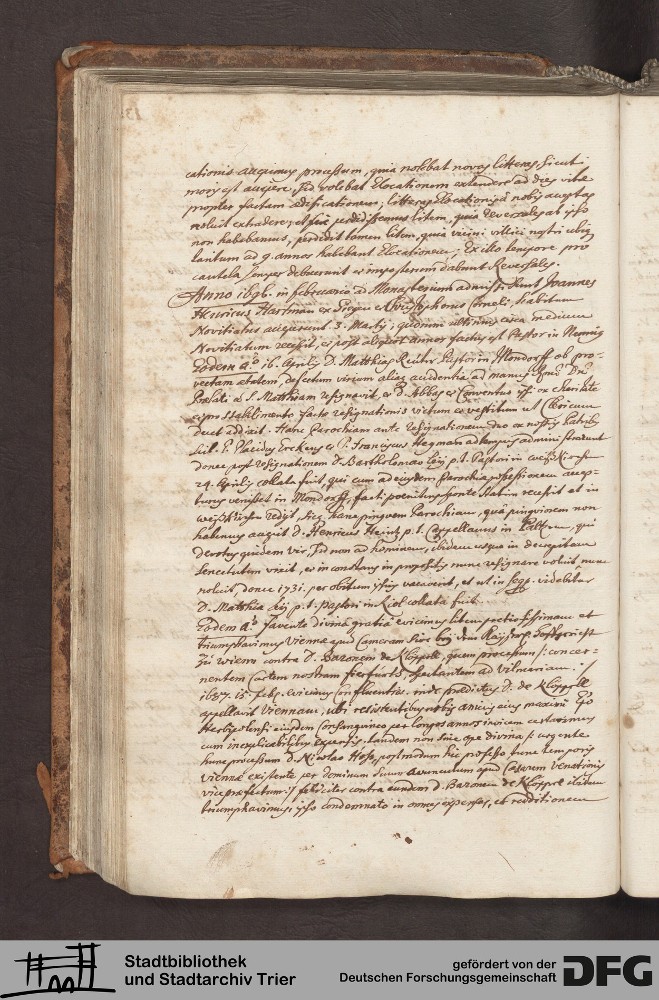 cationis aucpimus processum, quia nolebat novas litteras, sicut
moris est accipere, sed volebat Elocationem extendere ad dies vitæ
propter factam ædificationem, litteras Elocationis à nobis acceptas
noluit extradere, et sic perdidissemus litem, quia Reversales ab ipso
non habebamus, perdidit tamen litem, quia vicini villici nostri ubi
tantum ad 9. annos habebant Elocationem, Ex illo tempore pro
cautela semper debuerunt et in posterum dabunt Reversales.
Anno 1696. in februario ad Monasterium admissi sunt Joannes
Henricus Hartman ex et Christophorus Corneli, habitum
Novitiatus acceperunt 3. Martij, quorum ultimus circa medium
Novitiatum recessit, et post aliquot annos factus est Pastor in Nennig
Eodem aº 16. Aprilis D. Matthias Pastor in Mondorff ob pro-
vectam ætatem, defectum virium aliaq accidentia ad manus Rmi Dni
Prælati ad S. Matthiam resignavit, et D. Abbas et Conventus ipsi ex charitate
cum stabilimento facto resignationis victum et vestitum ut Clericum
decet addixit. Hanc Parochiam ante resignationem duo ex nostris Patribus
scil. P. Placidus et P. Franciscus Hegman ad tempus administrarunt
donec post resignationem D. Bartholomæo p.t. Pastori in
24. Aprilis collata fuit, qui cum ad ejusdem Parochiæ possessionem accep-
turus venisset in Mondorff, facti poenitens sponte statim recessit et in
redijt, sicq hanc pinguem Parochiam, quâ pinguiorem non
habemus accepit D. Henricus Heintz p.t. Capellanus in qui
devotus quidem vir, sed non ad hominem, ibidem usque in decrepitam
senectutem vixit, et in constans in proposito nunc resignare voluit nunc
noluit, donec 1731. per obitum ipsius vacavit, et ut in seqq. videbitur
D. Matthiæ p.t. Pastori in Riol collata fuit.
Eodem aº favente divinâ gratiâ evicimus litem pretiosissimam et
triumphavimus Viennæ apud Cameram sive bey dem Kayserl. Hoffgericht
zu Wienn contra D. Baronem de Klöppel, quem processum /: concer-
nentem Curtem nostram spectantem ad Vilmeriam :/
1687. 15. feb. evicimus Confluentiæ, inde prædictus D. de Klöppel
appellavit Viennam, ubi resistentibus nobis amicis ejus maxime
Herbipolensi ejusdem Consanguineo per longos annos invicem certavimus
cum inexplicabilibus expensis. tandem non sine ope divina /: urgente
hunc processum D. Nicolao Hess, postmodum hic professo tunc temporis
Viennæ existente per dominum suum Avunculum apud Cæsarem Venationis
vicepræfectum :/ feliciter contra eundem D. Baronem de Klöppel
triumphavimus, ipso condemnato in omnes expensas, et redditionem
Stadtbibliothek
und Stadtarchiv Trier
gefördert von der
Deutschen Forschungsgemeinschaft
DFG